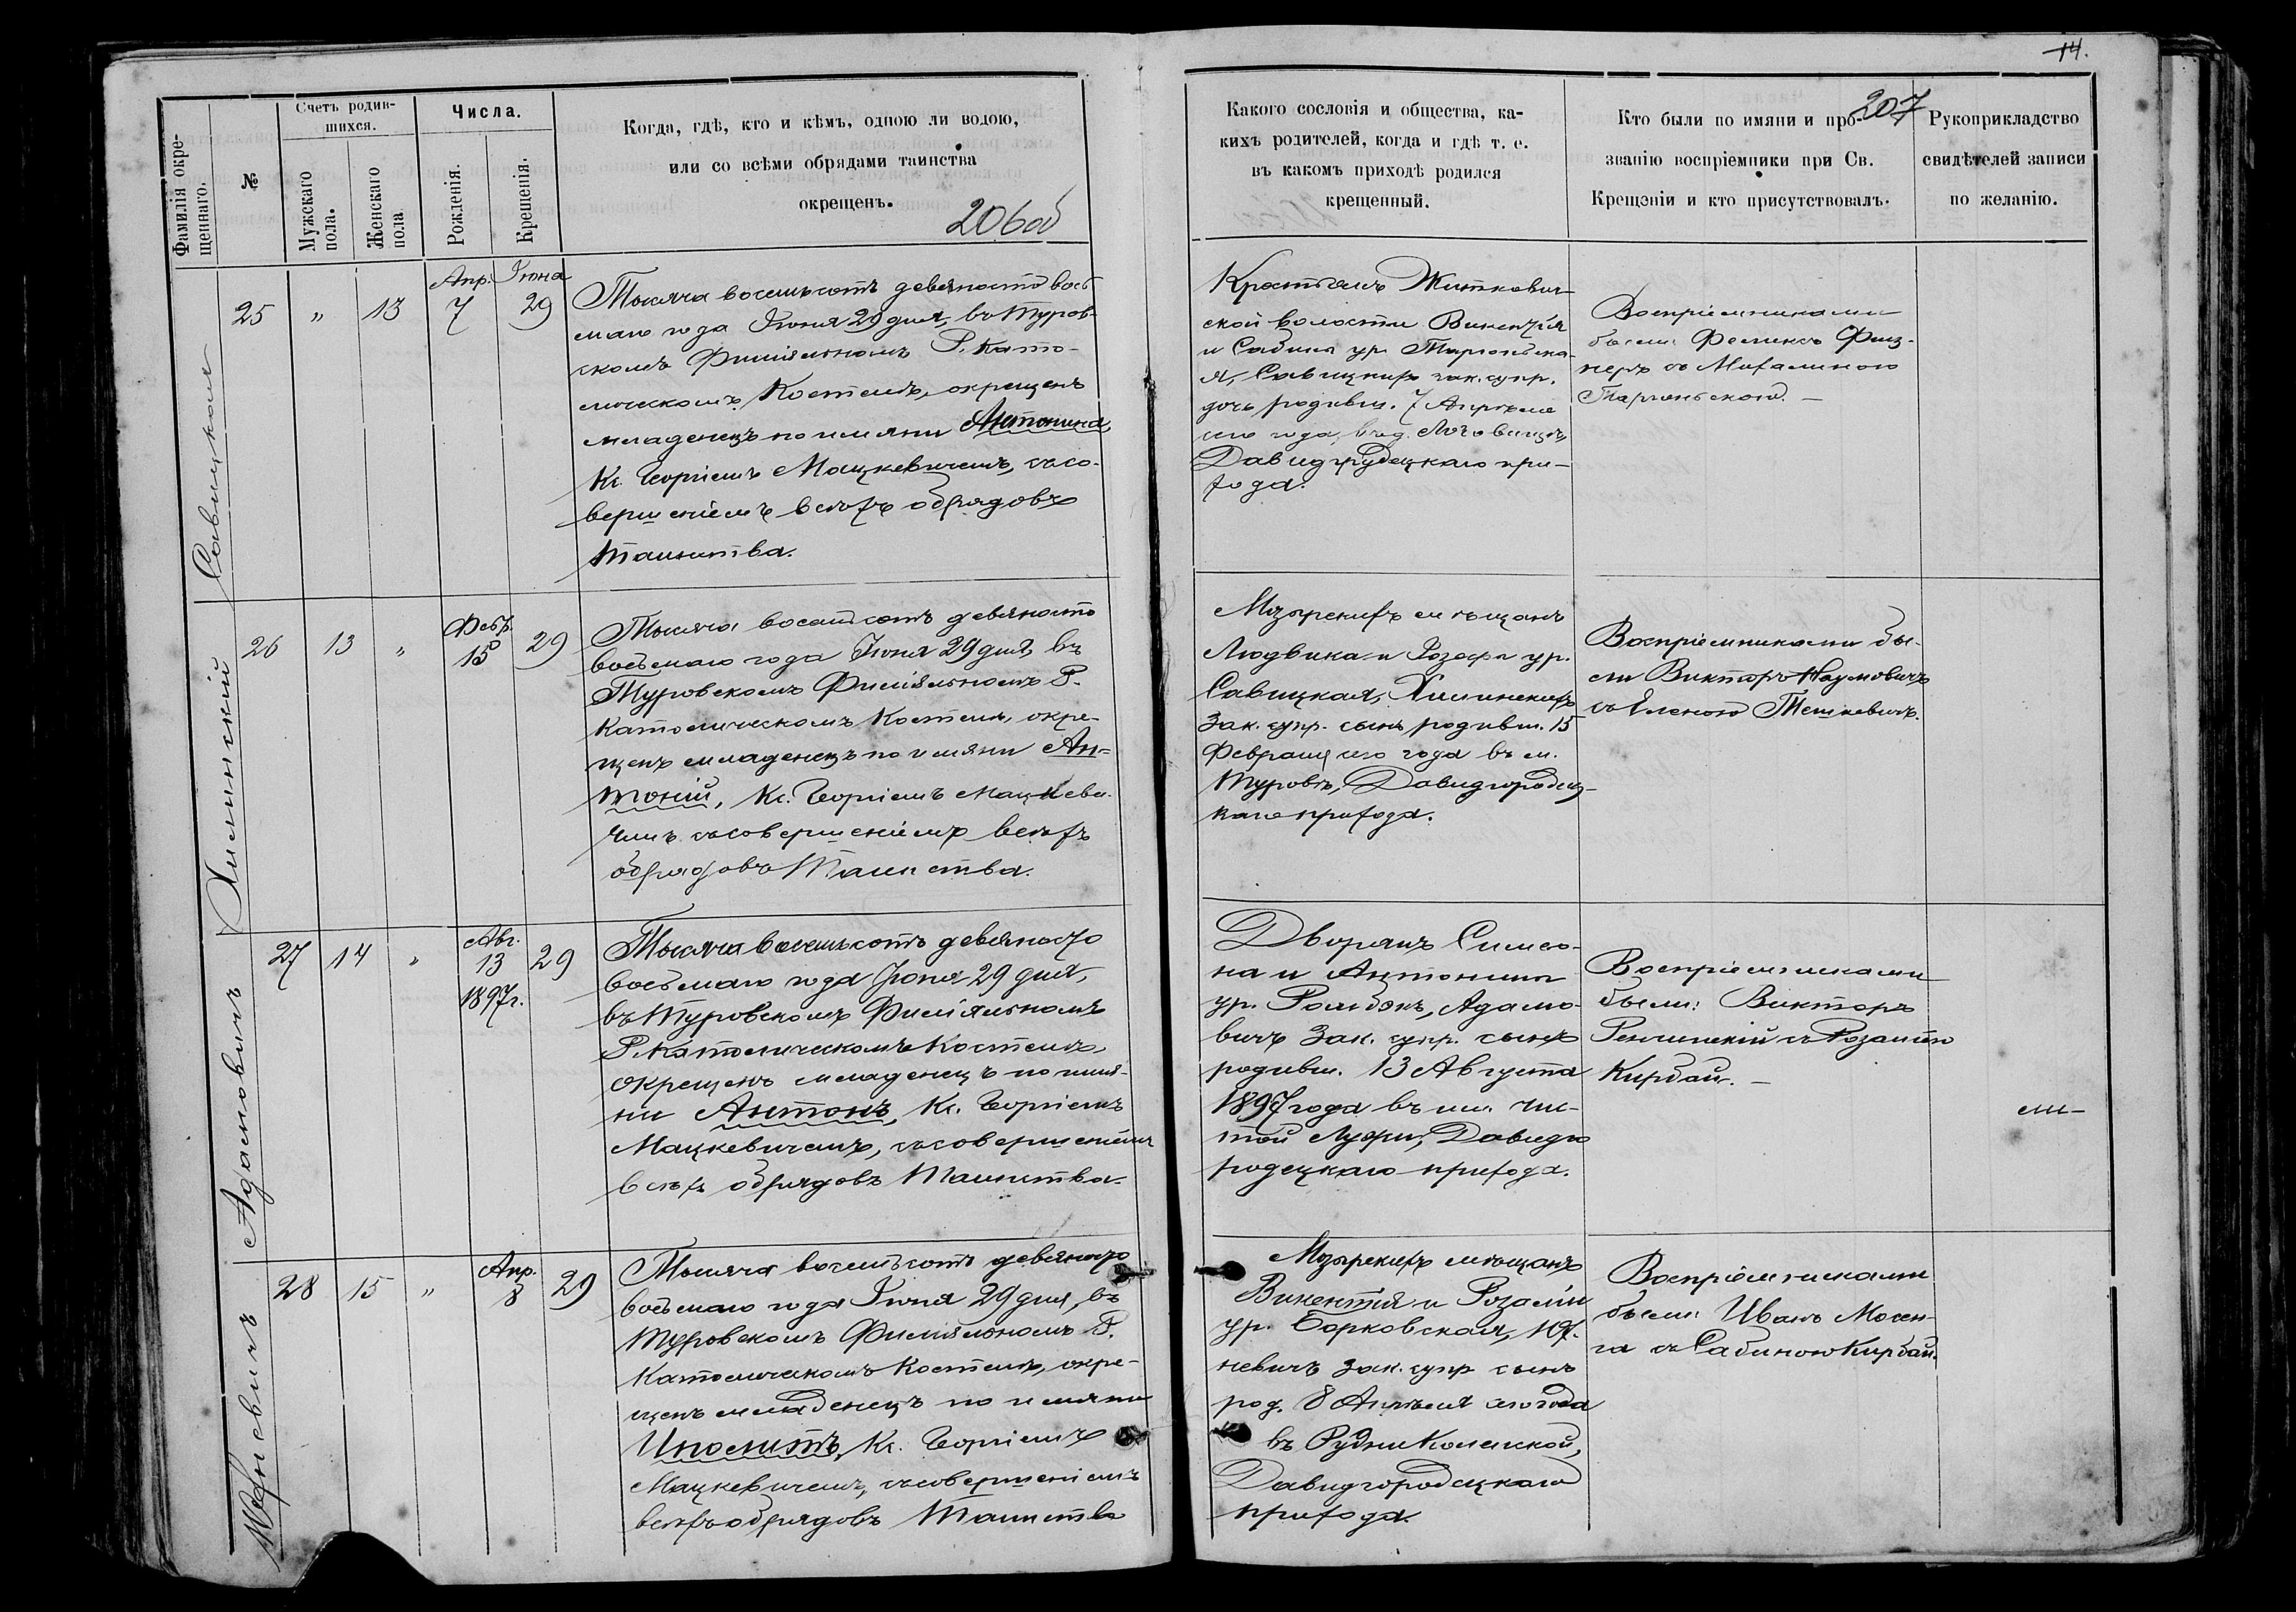 14.
207
Фамилія окре-
щеннаго.
№
Счетъ родив-
шихся.
Мужскаго
пола.
Женскаго
пола
Числа.
Рожденія.
Крещенія.
Когда, гдѣ, кто и кѣмъ, одною ли водою,
или со всѣми обрядами таинства
окрещенъ.
206об
Какого сословія и общества, ка-
кихъ родителей, когда и гдѣ т. е.
въ какомъ приходѣ родился
крещенный.
Кто были по имяни и про-
званію воспріемники при Св.
Крещеніи и кто присутствовалъ.
Рукоприкладство
свидѣтелей записи
по желанію.
Савицкая
25 " 13
Апр. 7
Іюня 29
Тысяча восемьсотъ девяносто вось
маго года Іюня 29 дня, въ Туров-
скомъ Филіяльномъ Р. Като-
лическомъ Костелѣ, окрещенъ
младенецъ по имяни Антонина,
Кс. Георгіемъ Мацкевичемъ, съ со-
вершеніемъ всѣхъ обрядовъ
Таинства.
Крестьянъ Житкович-
ской волости Викентія
и Сабины ур.
Савицкихъ зак. супр.
дочь родивш. 7 Апрѣля
сего года, въ д.
Давидгрудецкаго при-
хода.
Воспріемниками
были: Феликсъ
съ Михалиною
Хилинскій
26 13 "
Февр. 15
29
Тысяча восемьсотъ девяносто
восьмаго года Іюня 29 дня въ
Туровскомъ Филіяльномъ Р.
Католическомъ Костелѣ, окре-
щенъ младенецъ по имяни Ан-
тоній, Кс. Георгіемъ Мацкеви-
чемъ съ совершеніемъ всѣхъ
обрядовъ Таинства.
Мозырскихъ мѣщанъ
Людвика и Розаліи ур.
Савицкая, Хилинскихъ
зак. супр. сынъ родивш. 15
Февраля сего года въ м.
Туровѣ, Давидгородец-
каго прихода.
Воспріемниками бы-
ли Викторъ Наумовичъ
съ Еленою
Адамовичъ
27 14 "
Авг.
13
1897г.
29
Тысяча восемьсотъ девяносто
восьмаго года Іюня 29 дня,
въ Туровскомъ Филіяльномъ
Р. Католическомъ Костелѣ,
окрещенъ младенецъ по имя-
ни Антонъ, Кс. Георгіемъ
Мацкевичемъ, съ совершеніемъ
всѣхъ обрядовъ Таинства.
Дворянъ Симео-
на и Антонины
ур. Адамо-
вичъ зак. супр. сынъ
родивш. 13 Августа
1897 года въ им. Чис-
той Лужи, Давидго
родецкаго прихода.
Воспріемниками
были: Викторъ
съ Розаліею
Кирбай.
28 15 "
Апр. 8
29
Тысяча восемьсотъ девяносто
восьмаго года Іюня 29 дня, въ
Туровскомъ Филіяльномъ Р.
Католическомъ Костелѣ, окре-
щенъ младенецъ по имяни
Иполитъ, Кс. Георгіемъ
Мацкевичемъ, съ совершеніемъ
всѣхъ обрядовъ Таинства
Мозырскихъ мѣщанъ
Викентія и Розаліи
ур. Борковская,
невичъ зак. супр сынъ
род. 8 Апрѣля сего года
въ Рудни
Давидгородецкаго
прихода.
Воспріемниками
были: Иванъ
съ Сабиною Кирбай.